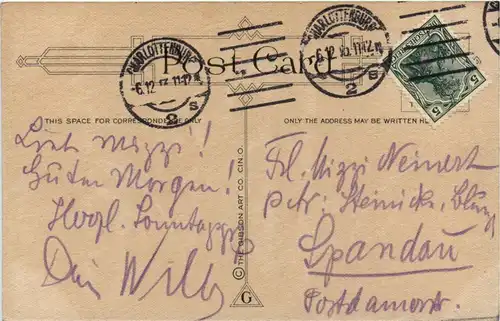 Post Card
CHARLOTTENBURG
6.12. 11-12 N
2 s
CHARLOTTENBURG
6.12. 11-12 N
2 s
5
5
THIS SPACE FOR CORRESPONDENCE ONLY
ONLY THE ADDRESS MAY BE WRITTEN HERE
Lieb Mizzi!
Guten Morgen!
Herzl. Sonntags
Dein Willy
© THE GIBSON ART CO. CIN. O.
G
Frl. Mizzi Neinert
Adr. Steinicke
Spandau
Potsdamerstr.